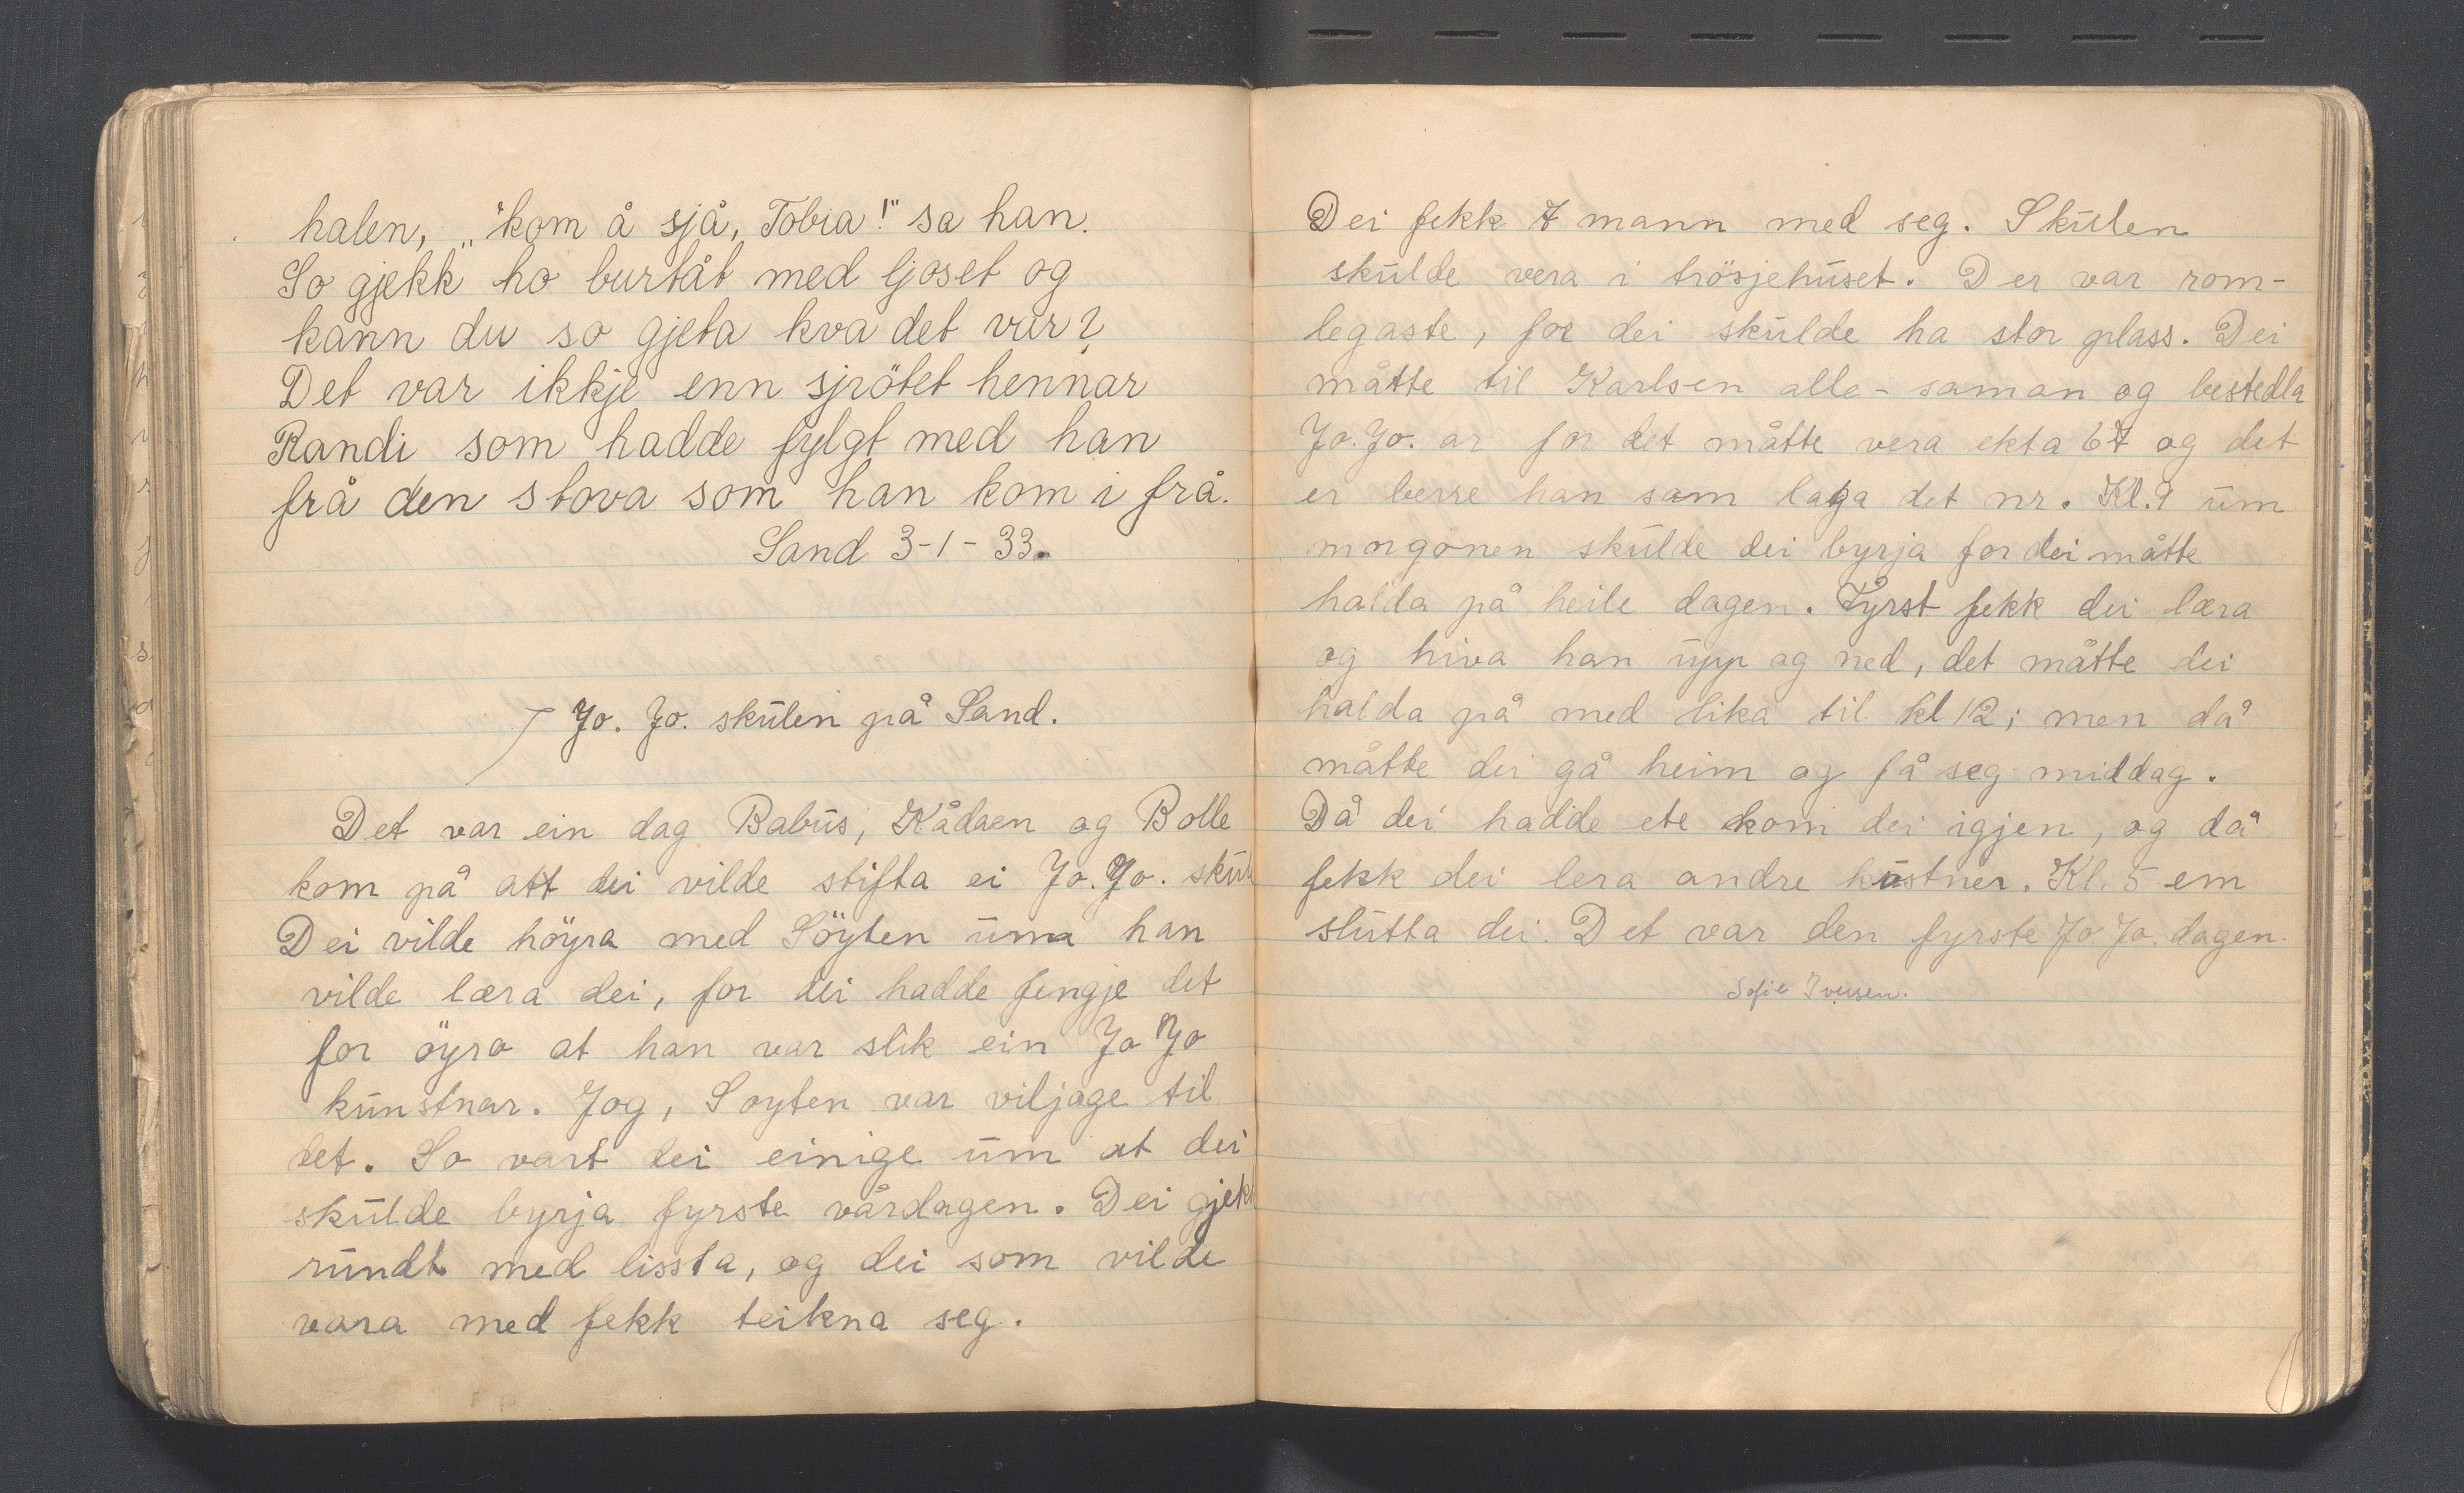 halen, „kom å sjå, Tobia!" sa han.
So gjekk ho burtåt med ljoset og
kann du so gjeta kva det var?
Det var ikkje enn sjrötet hennar
Randi som hadde fylgt med han
frå den stova som han kom i frå.
Sand 3-1-33.
Jo. Jo. skūlen på Sand.
Det var ein dag Babūs, Kådaen og Bolle
kom på att dei vilde stifta ei Jo. Jo. skūl
Dei vilde höyra med Söyten ūma han
vilde læra dei, for dei hadde fengje det
for öyro at han var slik ein Jo Jo
kūnstnar. Jog, Soyten var viljage til
det. So vart dei einige ūm at dei
skūlde byrja fyrste vårdagen. Dei gjekk
rūndt med lissta, og dei som vilde
vara med fekk teikna seg.
Dei fekk 7 mann med seg. Skūlen
skūlde vera i trösjehūset. Der var rom-
legaste, for dei skūlde ha stor plass. Dei
måtte til Karlsen alle-saman og bestedla
Jo. Jo. ar for det måtte vera ekta 67 og det
er berre han som laga det nr. Kl. 9 ūm
morgonen skūlde dei byrja for dei måtte
halda på heile dagen. Fyrst fekk dei læra
og hiva han ūpp og ned, det måtte dei
halda på med lika til kl 12; men då
måtte dei gå heim og få seg middag.
Då dei hadde ete kom dei igjen, og då
fekk dei lera andre kūstner. Kl. 5 em
slūtta dei. Det var den fyrste Jo Jo. dagen.
Sofie Iversen.